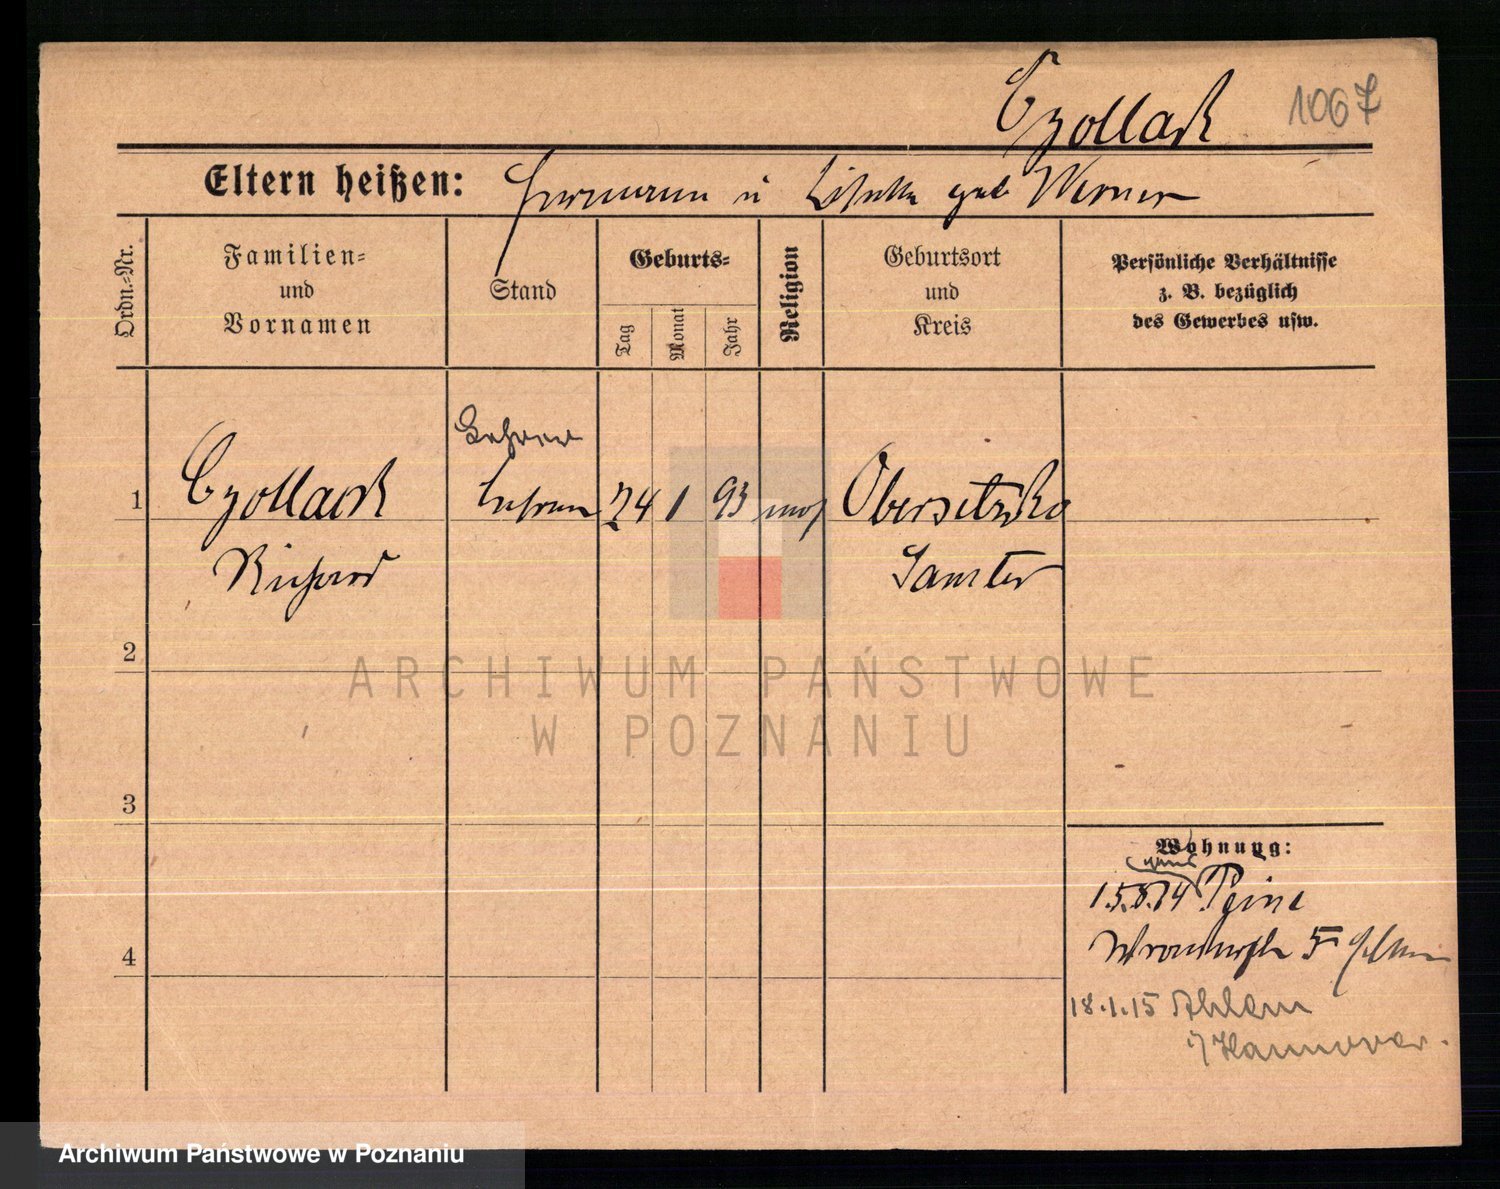 Czollack 1067
Eltern heißen: Hermann u Lisette geb Werner
Ordn.-Nr.
Familien-
und
Vornamen
Stand
Geburts-
Tag
Monat
Jahr
Religion
Geburtsort
und
Kreis
Persönliche Verhältnisse
z. B. bezüglich
des Gewerbes usw.
Lehrer
1 Czollack Lehrer 24 1 93 mos Obersitzko
Richard Samter
2
3
4
Wohnung:
15.8.14 Peine
5
18.1.15 Ahlem
Hannover.
ARCHIWUM PAŃSTWOWE
W POZNANIU
Archiwum Państwowe w Poznaniu